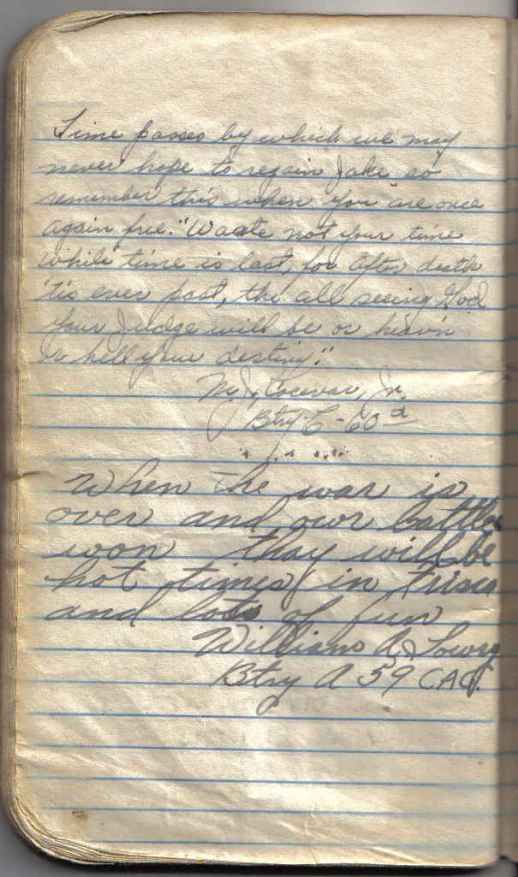 Time passes by which we may
never hope to regain Jake so
remember this when you are once
again free. "Waste not your time
while time is last, for after death
'tis ever past, the all seeing God
your Judge will be or heav'n
or hell your destiny."
Jr.
Btry C - 60
When the war is
over and our battles
won thay will be
hot times in Frisco
and lots of fun
William A Lowry
Btry A 59 CAC.